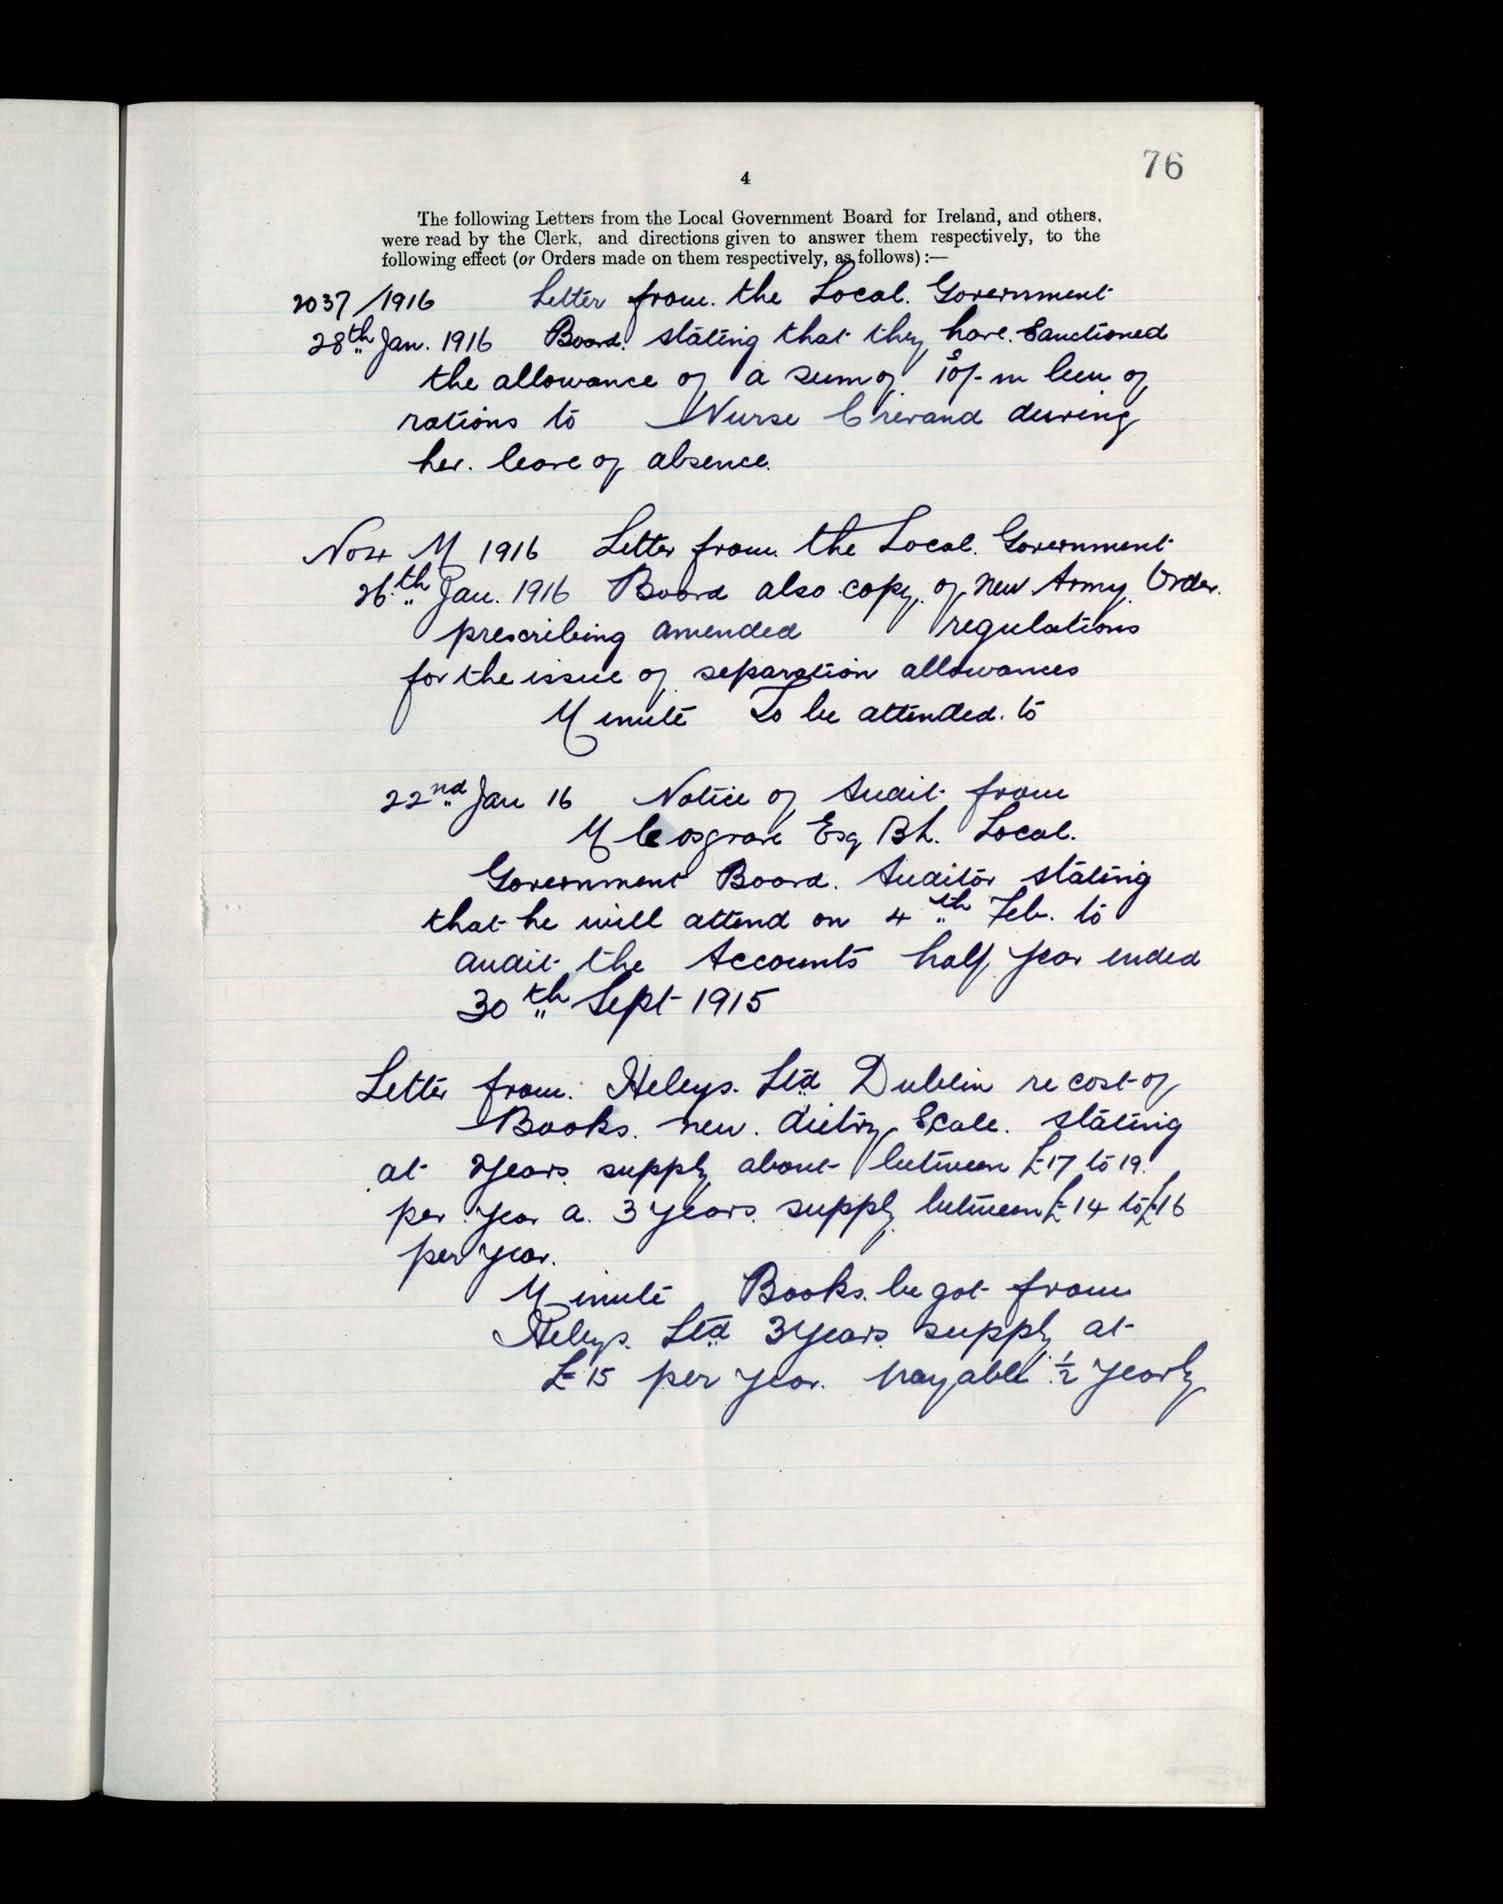 76
4
The following Letters from the Local Government Board for Ireland, and others,
were read by the Clerk, and directions given to answer them respectively, to the
following effect (or Orders made on them respectively, as follows) :—
2037/1916 Letter from the Local Government
28th Jan. 1916 Board stating that they have Sanctioned
the allowance of a sum of 10s/- in lieu of
rations to Nurse during
her leave of absence.
No 4 M 1916 Letter from the Local Government
26th Jan. 1916 Board also copy of new Army Order
prescribing amended regulations
for the issue of separation allowances
Minute To be attended to
22nd Jan 16 Notice of Audit from
M Cosgrave Esq BL. Local
Government Board. Auditor stating
that he will attend on 4th Feb. to
audit the Accounts half year ended
30th Sept 1915
Letter from Helys Ltd Dublin re cost of
Books new dietry Scale stating
at years supply about between £17 to 19
per year a 3 years supply between £14 to £16
per year.
Minute Books be got from
Helys Ltd 3 years supply at
£15 per year payable ½ yearly